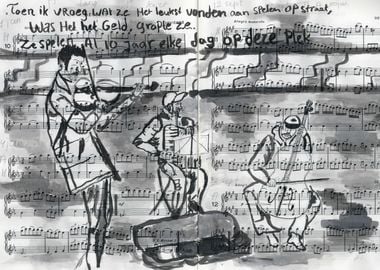 Toen ik vroeg. Wat ze Het leukst vonden aan spelen op straat,
Allegro moderato
Was Het Het Geld, grapte ze..
Ze spelen Al 10 Jaar elke dag op deze Plek.
10
12